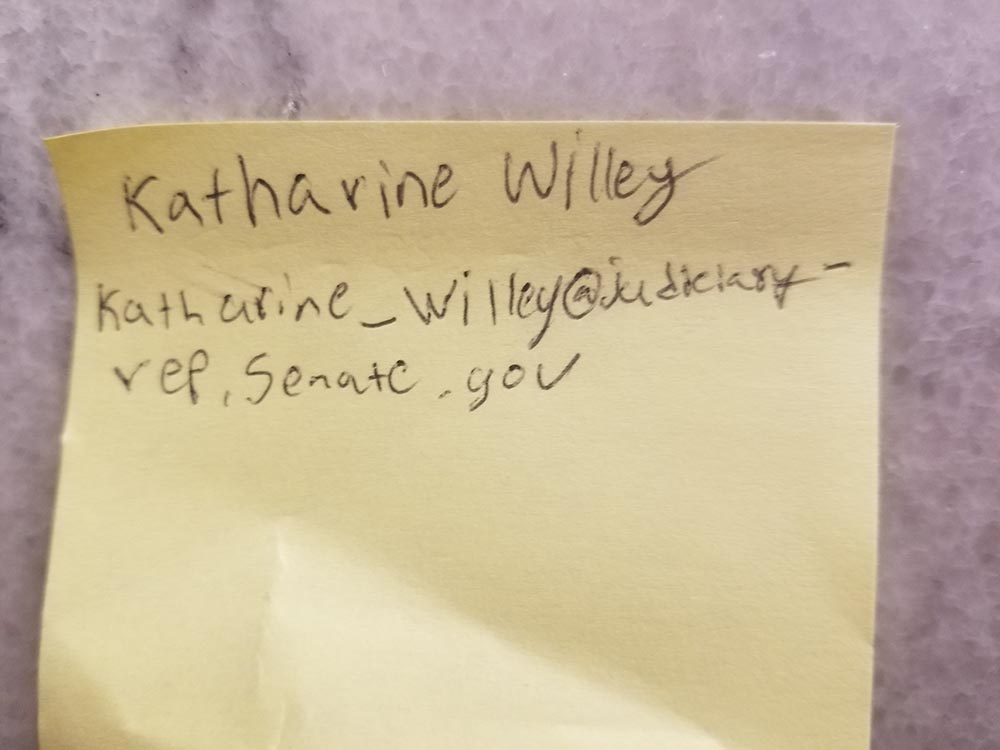 Katharine Willey
Katharine_Willey@judiciary-
rep.Senate.gov